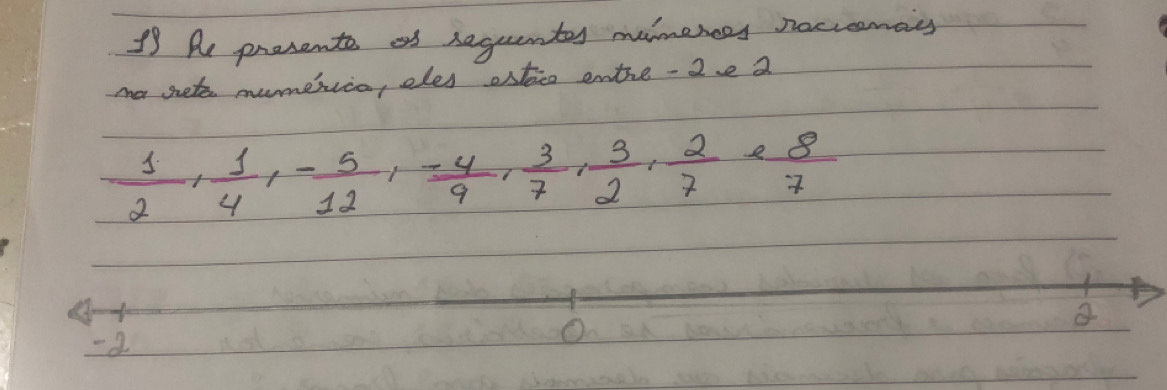 1) Re presente os seguintes números racionais
na reta numérica, eles estão entre -2 e 2
1/2, 1/4, -5/12, -4/9, 3/7, 3/2, 2/7 e 8/7
-2 0 2